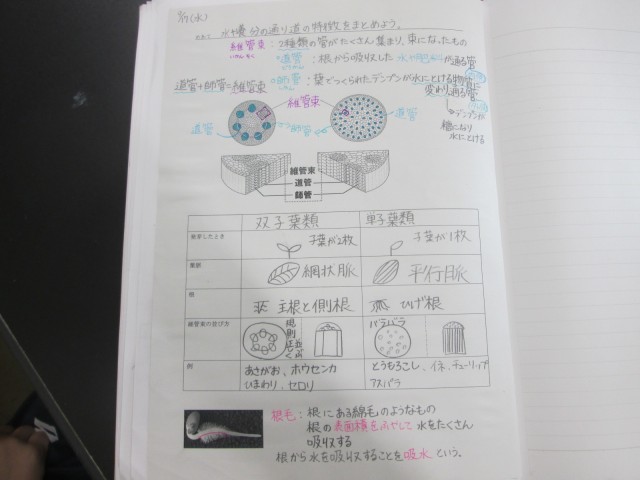 (水)
水や養分の通り道の特徴をまとめよう。
維管束：2種類の管がたくさん集まり、束になったもの
いかんそく
道管：根から吸収した水や肥料が通る管
どうかん
師管：葉でつくられたデンプンが水にとける物質に
しかん
変わり通る管
道管+師管=維管束
デンプンが
糖になり
水にとける
維管束
道管
師管
道管
維管束
道管
師管
双子葉類 単子葉類
発芽したとき 子葉が2枚 子葉が1枚
葉脈 網状脈 平行脈
根 主根と側根 ひげ根
維管束の並び方 規則正しく並ぶ バラバラ
例 あさがお、ホウセンカ とうもろこし、イネ、チューリップ
ひまわり、セロリ アスパラ
根毛：根にある綿毛のようなもの
根の表面積をふやして水をたくさん
吸収する
根から水を吸収することを吸水という。